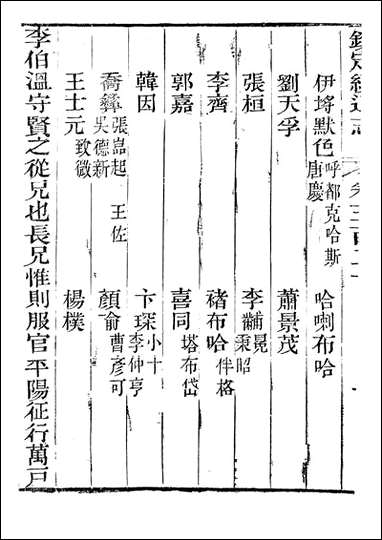 欽定續通志
伊埒默色 呼都克哈斯 唐慶 哈喇布哈
劉天孚 蕭景茂
張桓 李黼 冕 秉昭
李齊 褚布哈 伴格
郭嘉 喜同 塔布岱
韓因 卞琛 小十 李仲亨
喬彝 張嵓起 王佐 吳德新 顏瑜 曹彥可
王士元 致微 楊樸
李伯溫守賢之從兄也長兄惟則服官平陽征行萬戶